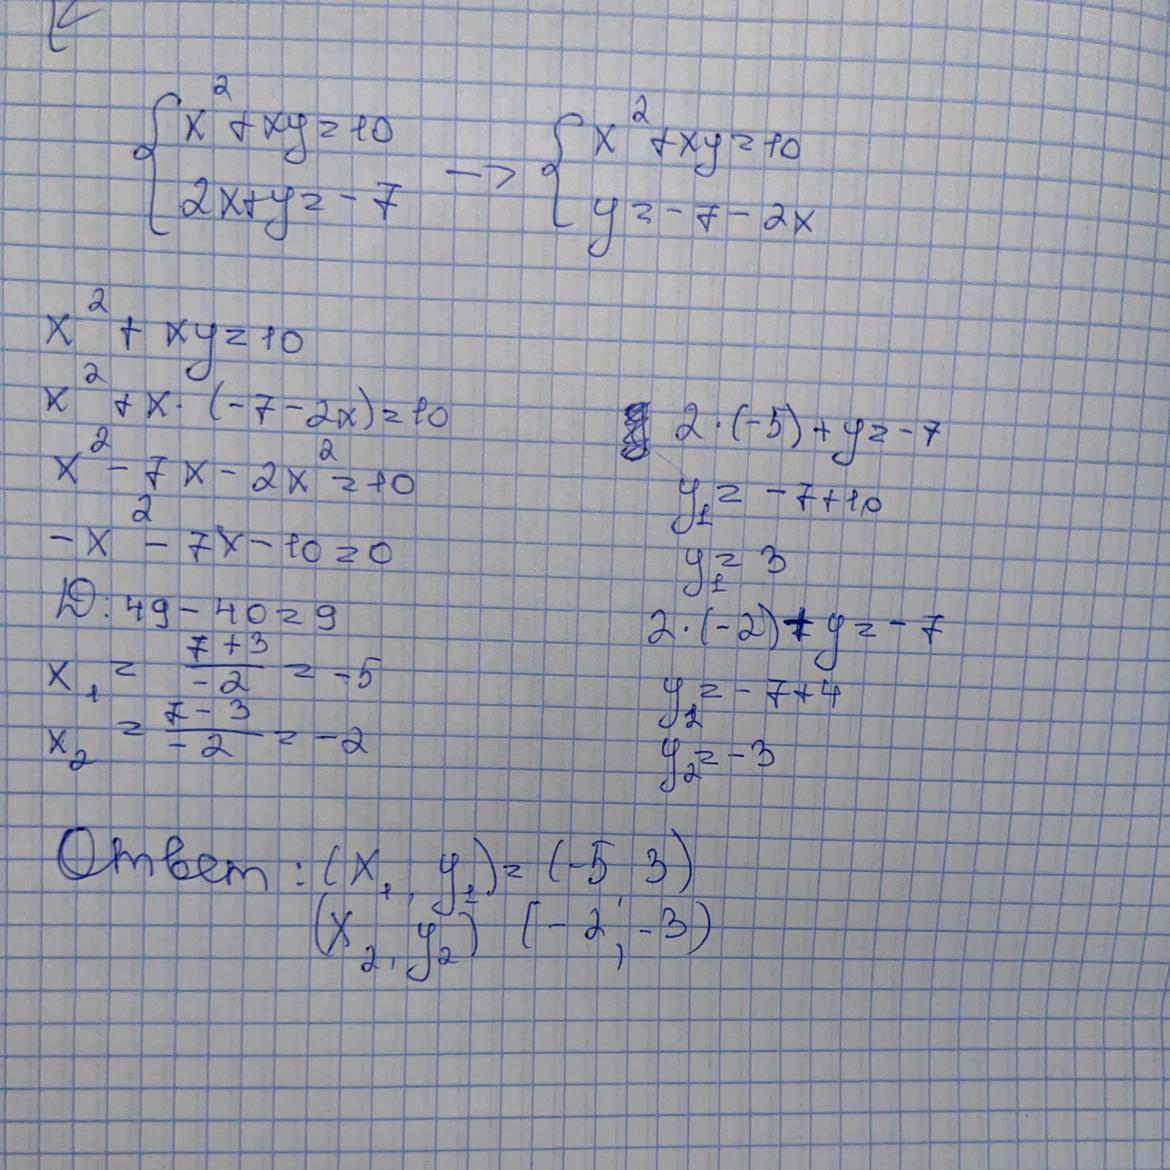 { x² + xy = 10 → { x² + xy = 10
2x + y = -7 y = -7 - 2x
x² + xy = 10
x² + x · (-7 - 2x) = 10
x² - 7x - 2x² = 10
-x² - 7x - 10 = 0
D: 49 - 40 = 9
x₁ = (7 + 3)/(-2) = -5
x₂ = (7 - 3)/(-2) = -2
2 · (-5) + y = -7
y₁ = -7 + 10
y₁ = 3
2 · (-2) + y = -7
y₂ = -7 + 4
y₂ = -3
Ответ: (x₁, y₁) = (-5 3)
(x₂, y₂) (-2; -3)